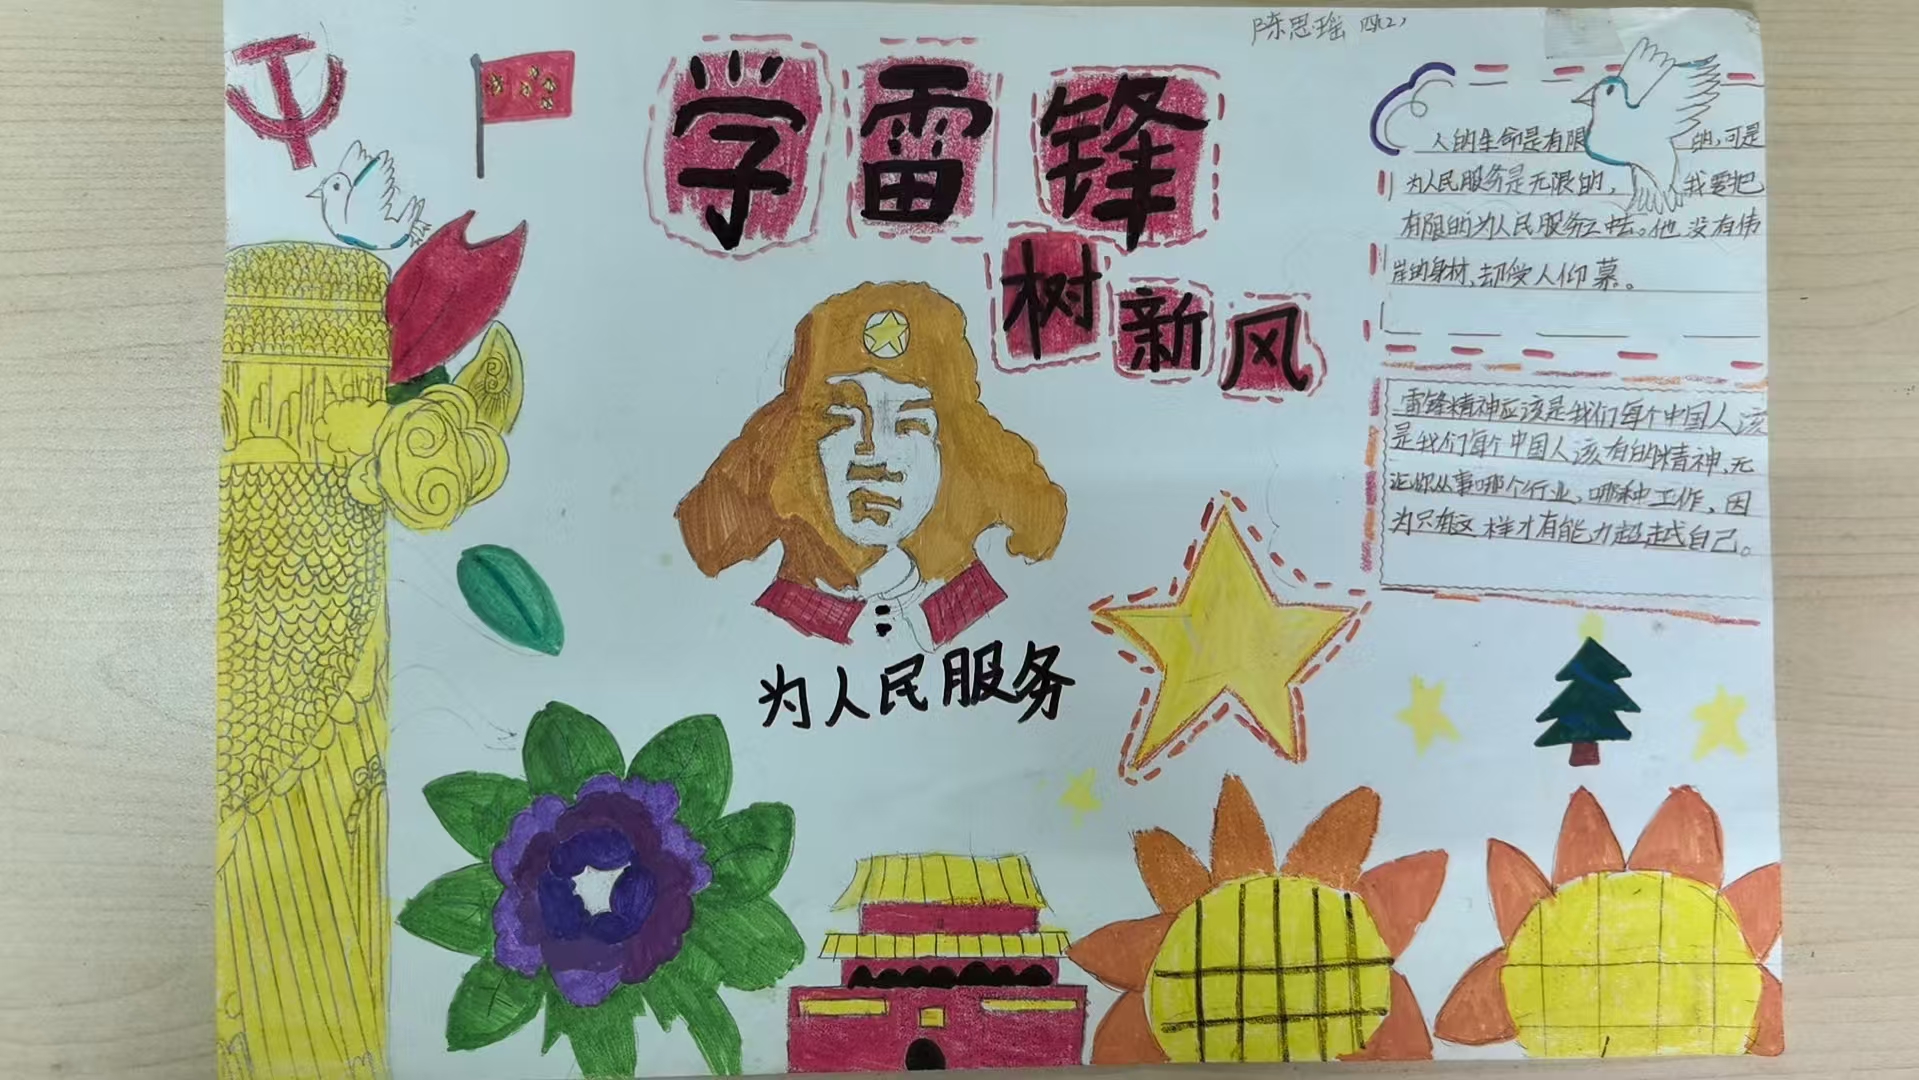 陈思瑶 四(2)
学雷锋
树新风
人的生命是有限的,可是
为人民服务是无限的,我要把
有限的为人民服务之中去。他没有伟
岸的身材,却受人仰慕。
雷锋精神应该是我们每个中国人该
是我们每个中国人该有的精神、无
论你从事哪个行业、哪种工作,因
为只有这样才有能力超越自己。
为人民服务